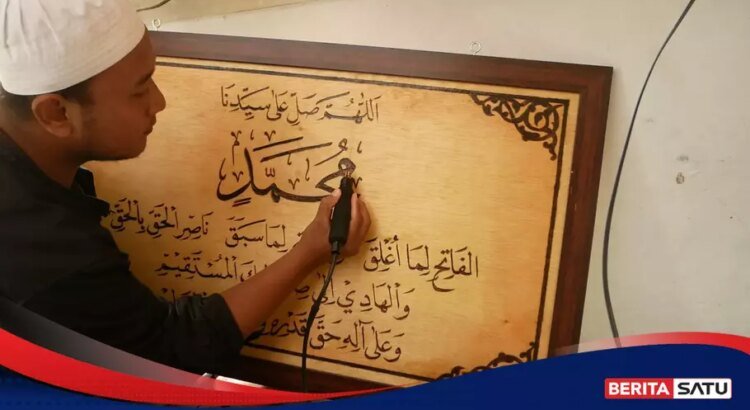 اَللّٰهُمَّ صَلِّ عَلَى سَيِّدِنَا
مُحَمَّدٍ
الفَاتِحِ لِمَا أُغْلِقَ لِمَا سَبَقَ نَاصِرِ الْحَقِّ بِالْحَقِّ
وَالْهَادِي إِلَى الْمُسْتَقِيْمِ
وَعَلَى آلِهِ حَقَّ قَدْرِهِ
BERITA SATU